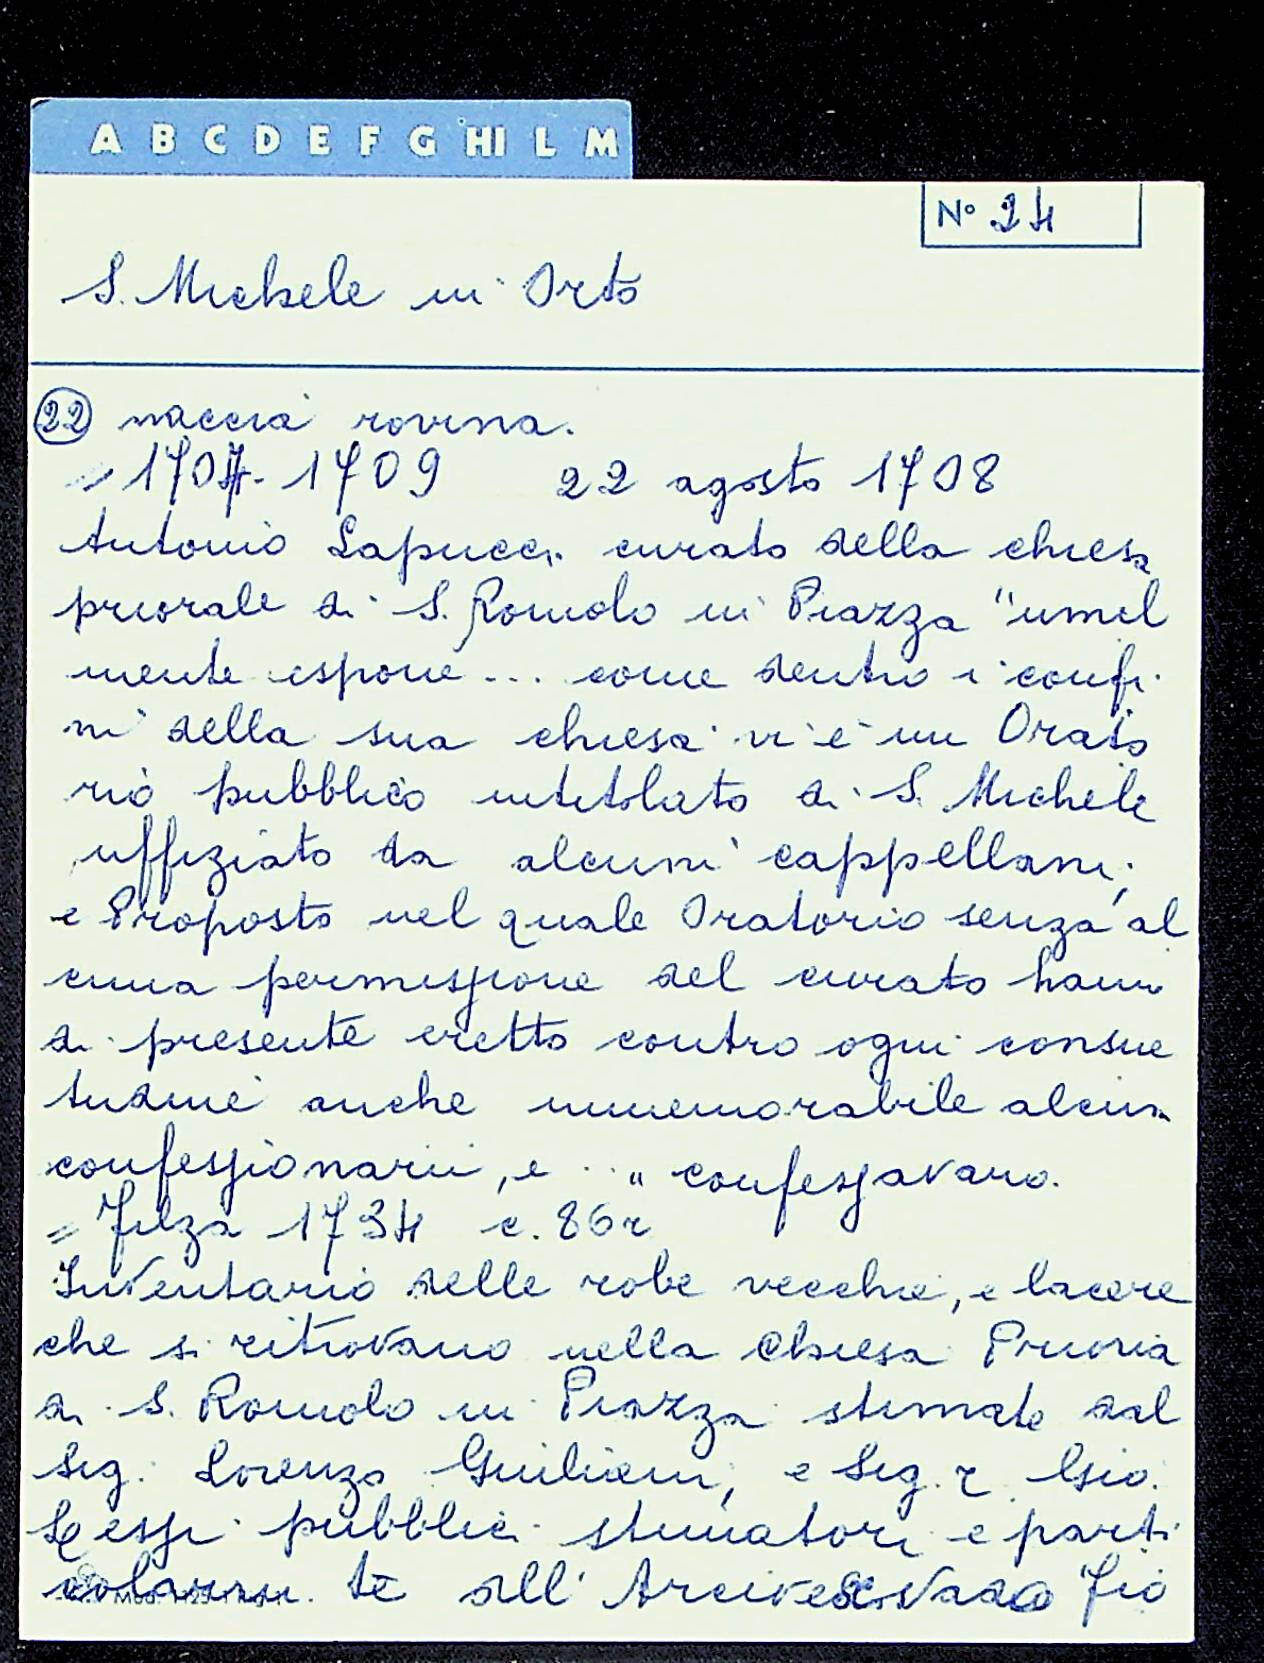 A B C D E F G HI L M
N° 24
S. Michele in Orto
22 naccia rovina.
= 1707-1709 22 agosto 1708
Antonio Lapucci curato della chiesa
priorale di S. Romolo in Piazza "umil
mente espone... come dentro i confi
ni della sua chiesa vi è un Orato
rio pubblico intitolato di S. Michele
uffiziato da alcuni cappellani,
e Proposto nel quale Oratorio senza al
cuna permissione del curato hanno
di presente eretto contro ogni consue
tudine anche immemorabile alcuni
confessionarii, e ... " confessavano.
= Filza 1734 c. 86r
Inventario delle robe vecchie, e lacere
che si ritrovano nella Chiesa Prioria
di S. Romolo in Piazza stimate dal
Sig. Lorenzo Giuliani, e Sig.r Gio.
pubblici stimatori e parti
te all' Arcivescovado Fio